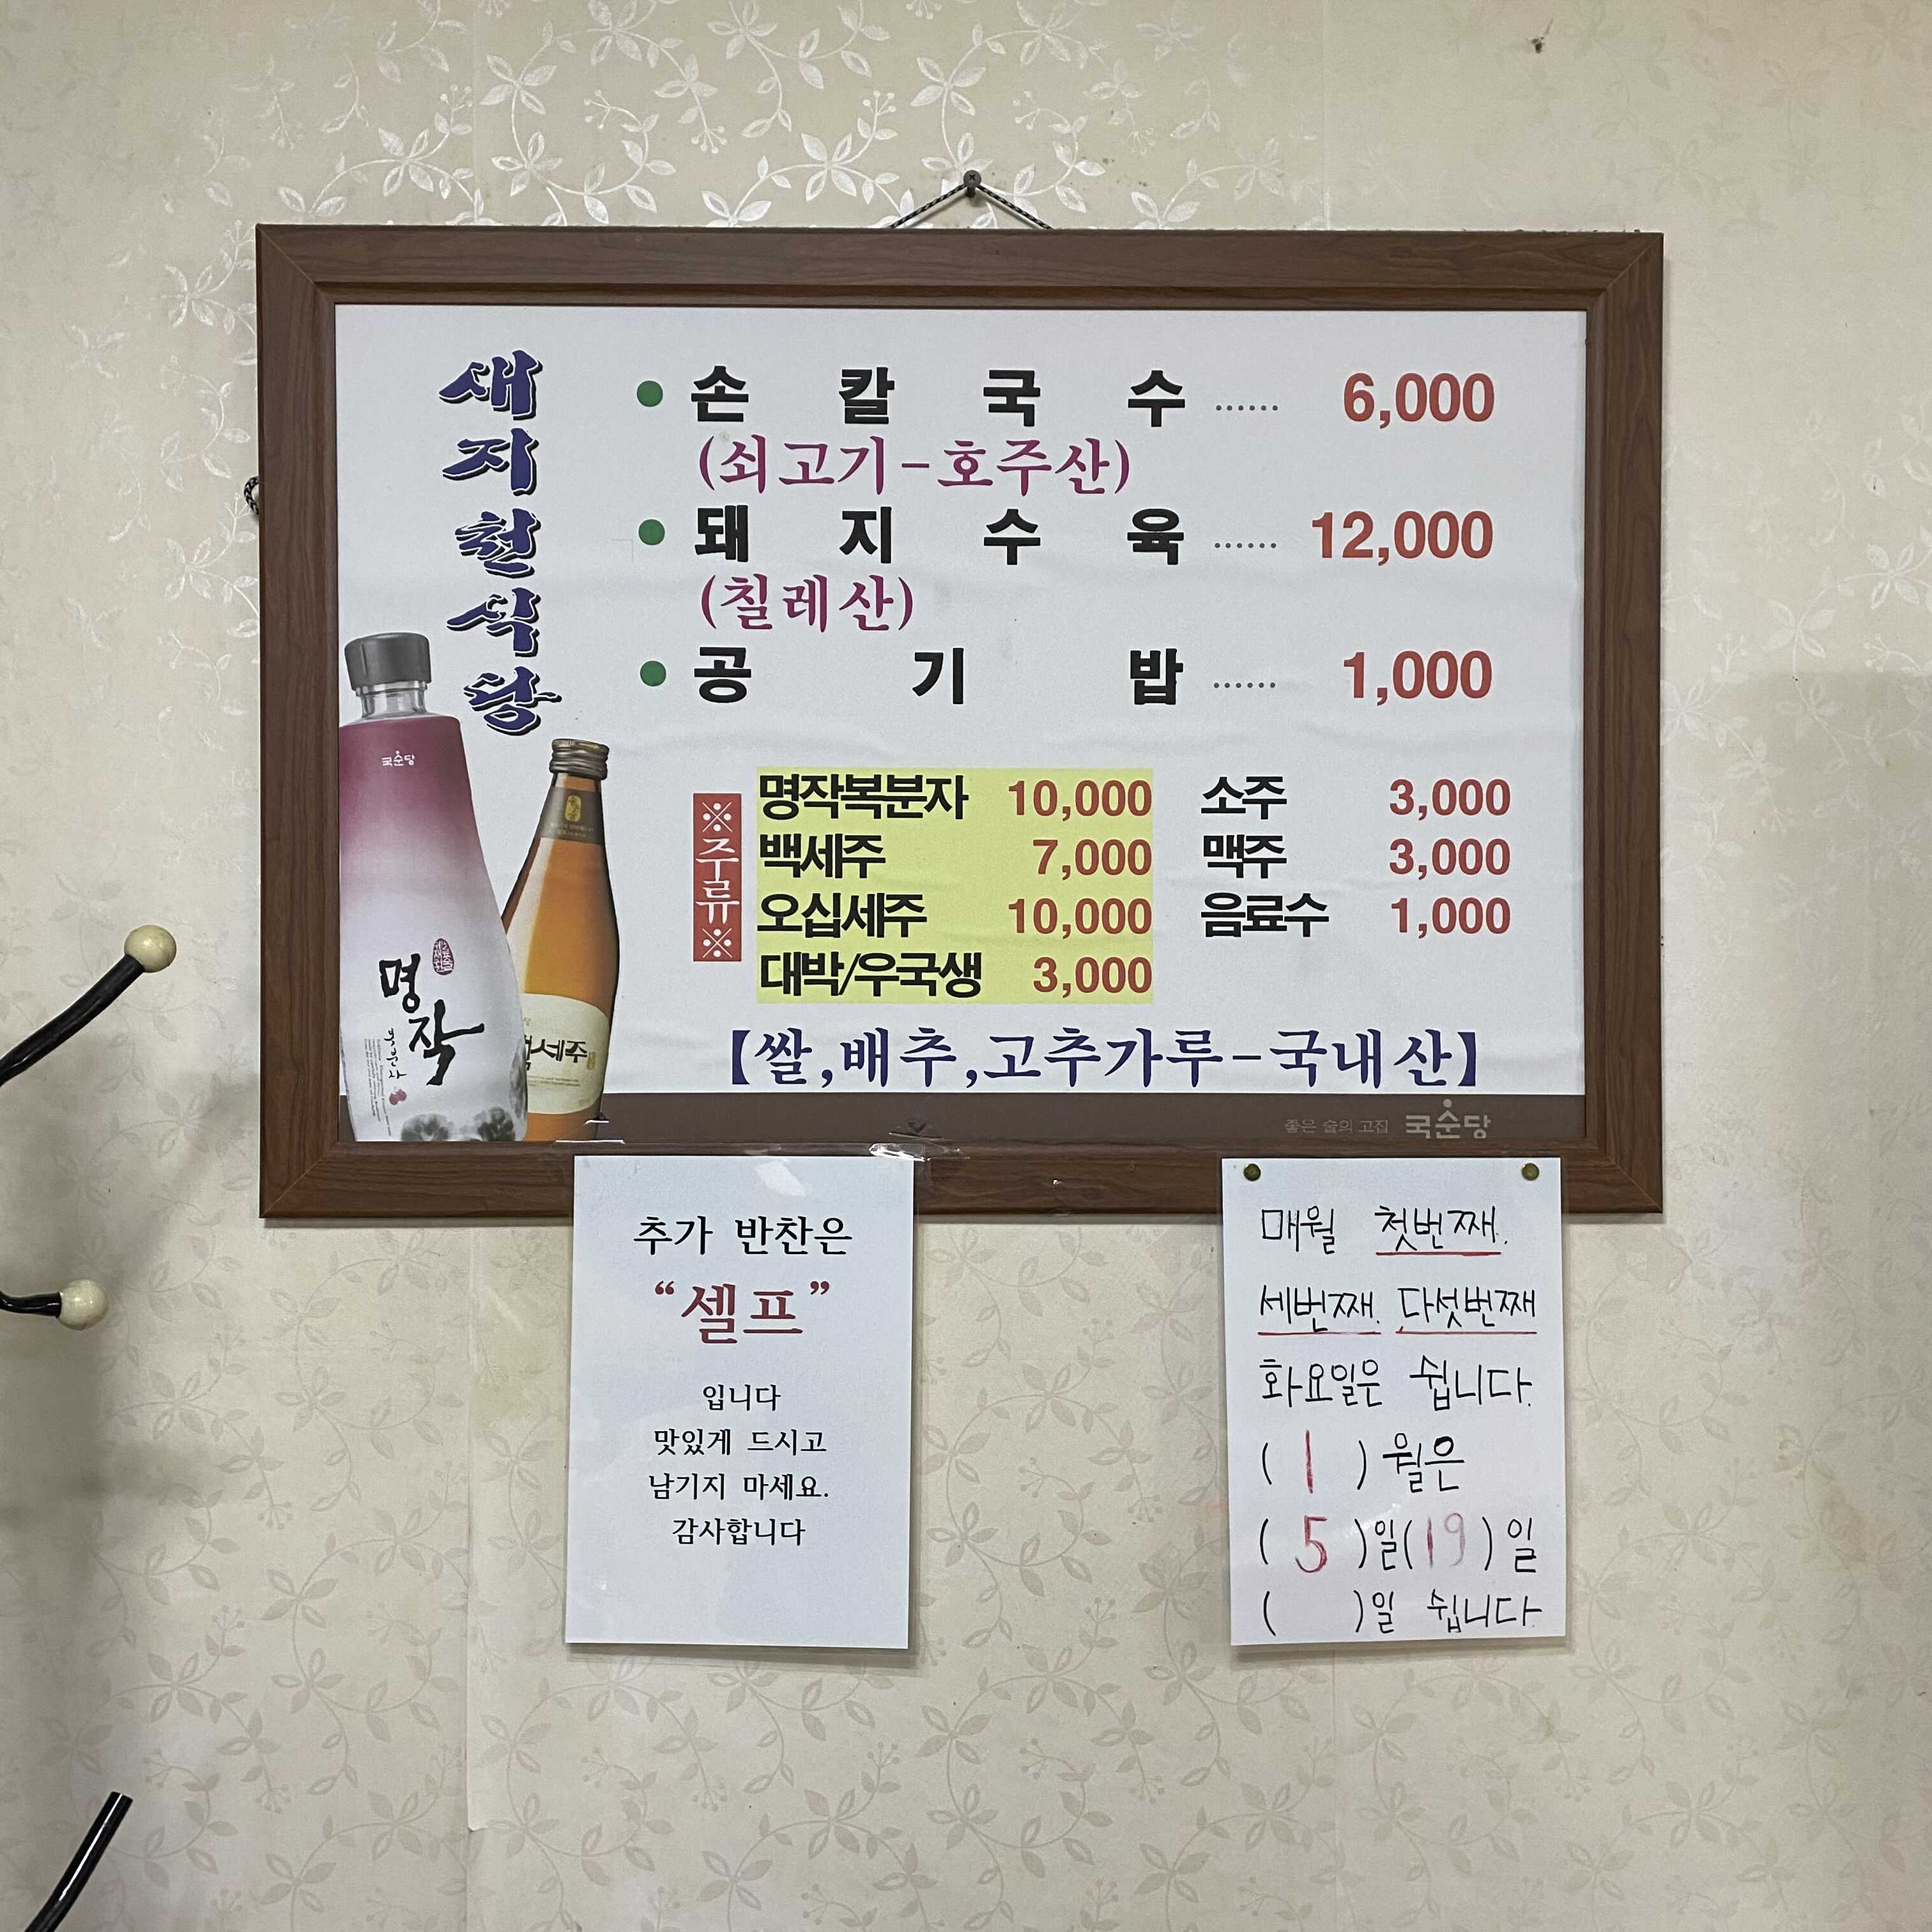 새지천식당
● 손칼국수 ...... 6,000
(쇠고기-호주산)
● 돼지수육 ...... 12,000
(칠레산)
● 공기밥 ...... 1,000
※주류※
명작복분자 10,000 소주 3,000
백세주 7,000 맥주 3,000
오십세주 10,000 음료수 1,000
대박/우국생 3,000
【쌀,배추,고추가루-국내산】
좋은 술의 고집 국순당
국순당
명작
복분자
백세주
추가 반찬은
“셀프”
입니다
맛있게 드시고
남기지 마세요.
감사합니다
매월 첫번째.
세번째. 다섯번째
화요일은 쉽니다.
( 1 ) 월은
( 5 )일(19)일
( )일 쉽니다